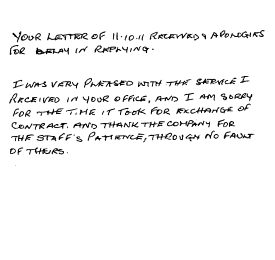 YOUR LETTER OF 11.10.11 RECEIVED & APOLOGIES
FOR DELAY IN REPLYING.
I WAS VERY PLEASED WITH THE SERVICE I
RECEIVED IN YOUR OFFICE, AND I AM SORRY
FOR THE TIME IT TOOK FOR EXCHANGE OF
CONTRACT. AND THANK THE COMPANY FOR
THE STAFF'S PATIENCE, THROUGH NO FAULT
OF THEIRS.